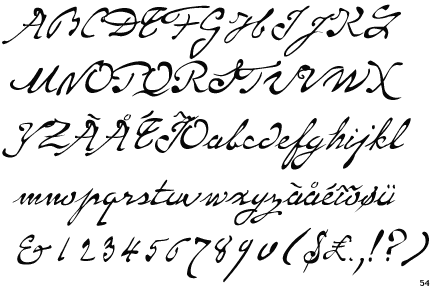 ABCDEFGHIJKL
MNOPQRSTUVWX
YZÀÅÉÎÕabcdefghijkl
mnopqrstuvwxyzàåéîõøü
&1234567890($£.,!?)
54